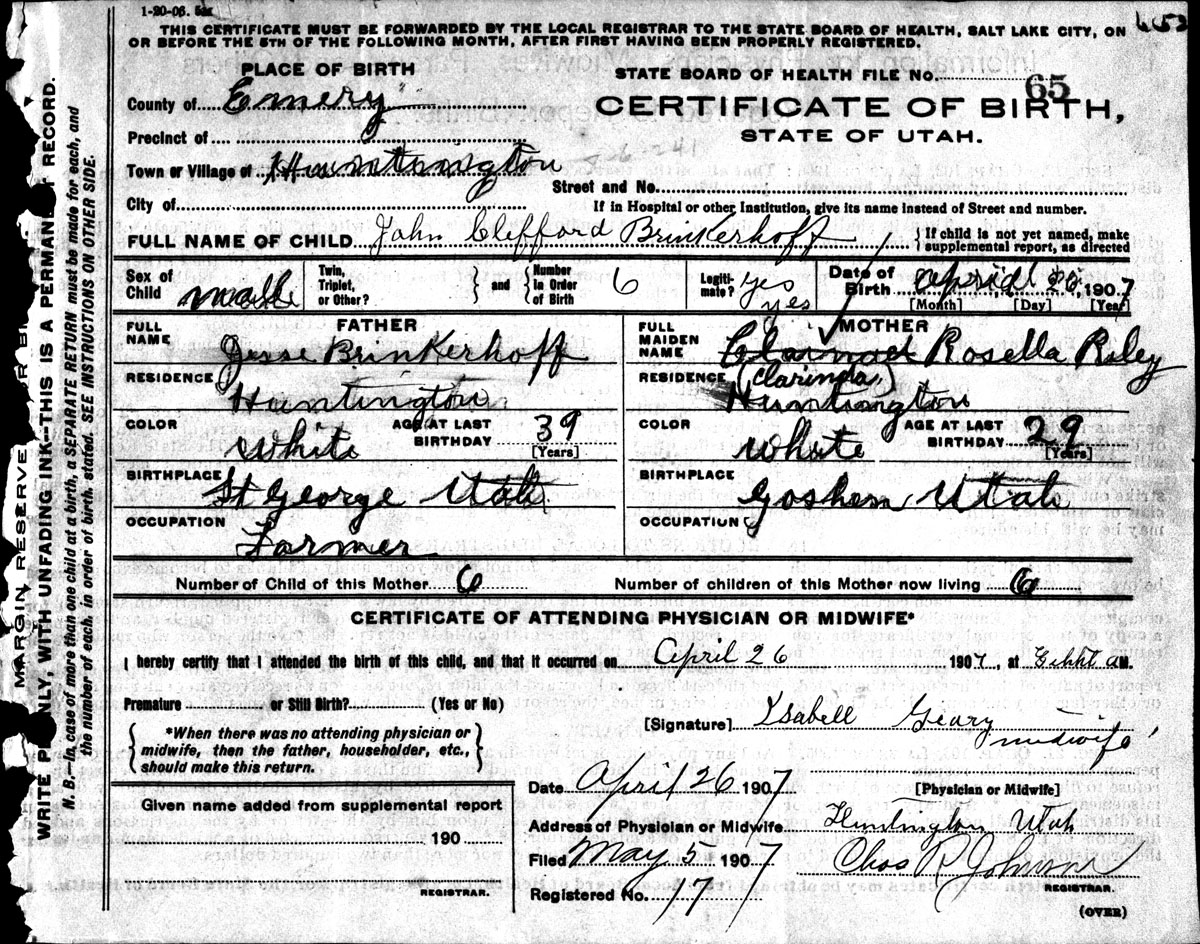 1-20-06.
653
THIS CERTIFICATE MUST BE FORWARDED BY THE LOCAL REGISTRAR TO THE STATE BOARD OF HEALTH, SALT LAKE CITY, ON
OR BEFORE THE 5TH OF THE FOLLOWING MONTH, AFTER FIRST HAVING BEEN PROPERLY REGISTERED.
PLACE OF BIRTH
STATE BOARD OF HEALTH FILE No. 65
County of Emery
CERTIFICATE OF BIRTH,
STATE OF UTAH.
Precinct of
Town or Village of Huntington
Street and No.
City of
If in Hospital or other Institution, give its name instead of Street and number.
FULL NAME OF CHILD John Clefford Brinkerhoff
If child is not yet named, make
supplemental report, as directed
Sex of Child male
Twin, Triplet, or Other? and Number in Order of Birth 6
Legiti-mate? yes yes
Date of Birth April 26, 1907
[Month] [Day] [Year]
FATHER
FULL NAME Jesse Brinkerhoff
RESIDENCE Huntington
COLOR White AGE AT LAST BIRTHDAY 39 [Years]
BIRTHPLACE St George Utah
OCCUPATION Farmer
MOTHER
FULL MAIDEN NAME Rosella Riley
(Clarinda)
RESIDENCE Huntington
COLOR White AGE AT LAST BIRTHDAY 29 [Years]
BIRTHPLACE Goshen Utah
OCCUPATION
Number of Child of this Mother 6 Number of children of this Mother now living 6
CERTIFICATE OF ATTENDING PHYSICIAN OR MIDWIFE*
I hereby certify that I attended the birth of this child, and that it occurred on April 26 1907, at Eihht AM.
Premature or Still Birth? (Yes or No)
*When there was no attending physician or
midwife, then the father, householder, etc.,
should make this return.
[Signature] Isabell Geary
midwife
[Physician or Midwife]
Date April 26 1907
Address of Physician or Midwife Huntington Utah
Filed May 5 1907 Chas R Johnson
REGISTRAR.
Registered No. 17
Given name added from supplemental report
190
REGISTRAR.
(OVER)
MARGIN RESERVE FOR BI
WRITE P NLY, WITH UNFADING INK—THIS IS A PERMANE RECORD.
N. B.—In case of more than one child at a birth, a SEPARATE RETURN must be made for each, and
the number of each, in order of birth, stated. SEE INSTRUCTIONS ON OTHER SIDE.